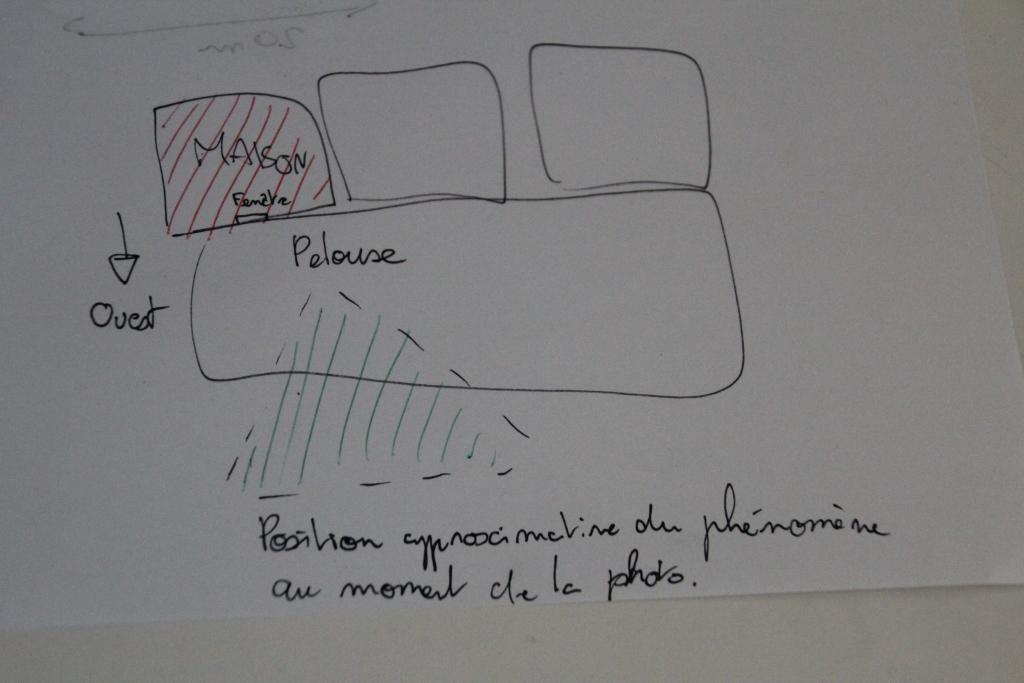 20 m
MAISON
Fenêtre
Pelouse
Ouest
Position approximative du phénomène
au moment de la photo.